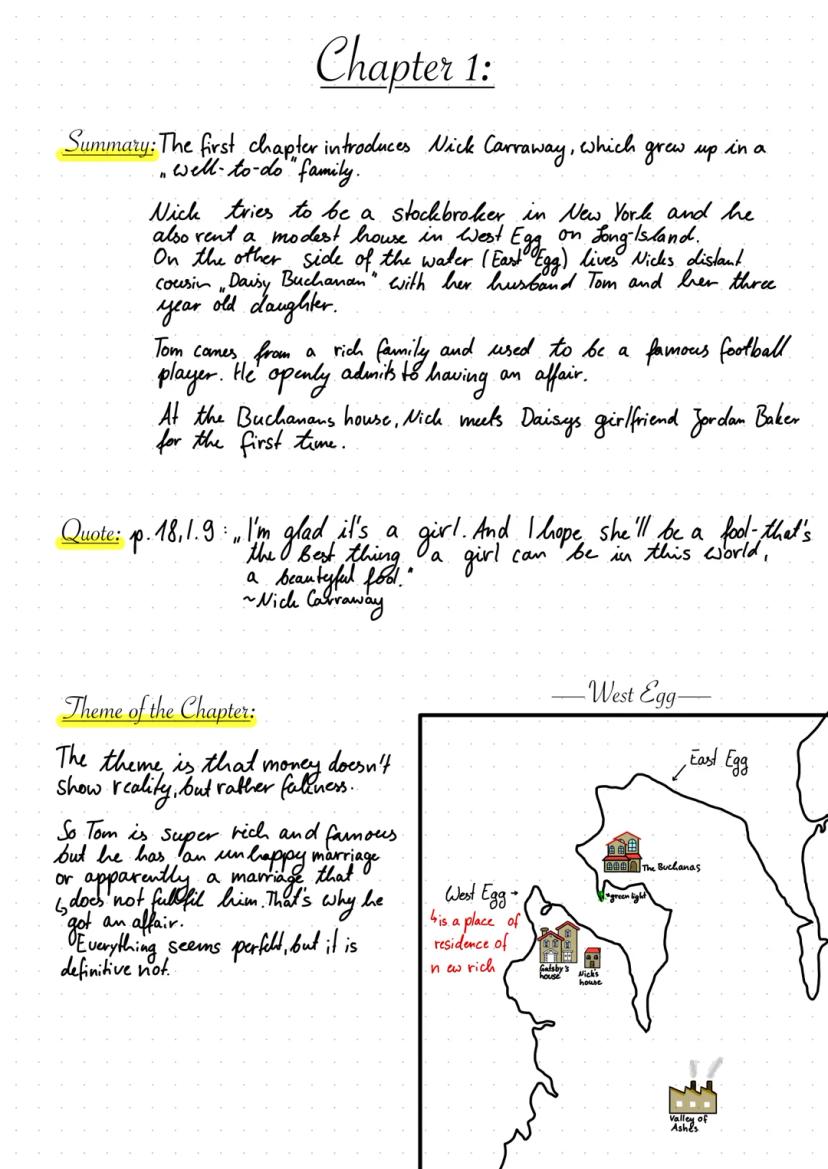 Chapter 1:
Summary: The first chapter introduces Nick Carraway, which grew up in a
„well-to-do" family.
Nick tries to be a stockbroker in New York and he
also rent a modest house in West Egg on Long-Island.
On the other side of the water (East Egg) lives Nicks distant
cousin „Daisy Buchanan" with her husband Tom and her three
year old daughter.
Tom comes from a rich family and used to be a famous football
player. He openly admits to having an affair.
At the Buchanans house, Nick meets Daisys girlfriend Jordan Baker
for the first time.
Quote: p.18, l.9: „I'm glad it's a girl. And I hope she'll be a fool-that's
the Best thing a girl can be in this world,
a beautyful fool."
~Nick Carraway
Theme of the Chapter:
The theme is that money doesn't
show reality, but rather
So Tom is super rich and famous
but he has an unhappy marriage
or apparently a marriage that
↳ does not fullfil him. That's why he
got an affair.
Everything seems perfekt, but it is
definitive not.
West Egg
East Egg
The Buchanas
green light
West Egg →
↳ is a place of
residence of
new rich
Gatsby's
house
Nick's
house
Valley of
Ashes